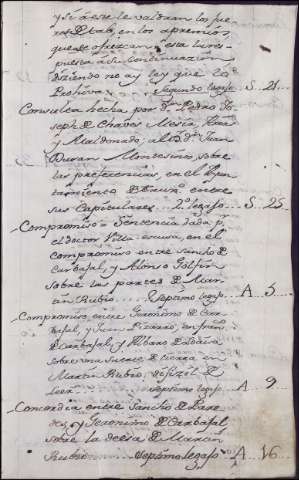 y si á este le valdran los fue
ros en los apremios,
que se ofrezcan, y esta la res-
puesta á su continuazion
Diziendo no ay ley que lo
Segundo legajo S. 21.
Consulta hecha por Dn. Pedro Jo-
seph de Chaves Mexia,
y Maldonado, al Dn. Juan
Duran Montesinos, sobre
las preferencias, en el Ayun
tamiento de entre
sus Capitulares. 2º legajo. S. 25
Compromiso = Sentencia dada p.
el doctor Villa escusa, en el
compromiso entre Sancho de
Carbajal, y Alonso Golfin
sobre las partes de Mar-
tin Rubio. Septimo legajo. A 5
Compromiso, entre Geronimo de Car-
bajal, y Juan Pizarro, en
de Carbajal, y Albaro de Aldana
sobre una suerte de tierra en
Martin Rubio,
Septimo legajo. A 9
Concordia entre Sancho de Pare-
des, y Jeronimo de Carbajal
sobre la deesa de Martin
Rubio Septimo legajo A 16